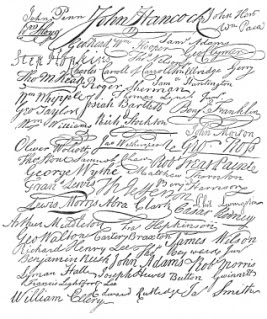 John Penn John Hancock John Hart
Wm Paca
Geo Clymer
Saml Adams
Wm Hooper
Step Hopkins
Charles Carroll of Carrollton Elbridge Gerry
Tho M:Kean Roger Sherman Saml Huntington
Wm Whipple Thomas Lynch Junr
Geo Taylor Josiah Bartlett Benj Franklin
Wm Williams Richd Stockton
John Morton
Oliver Wolcott Jno Witherspoon Geo Ross
Thos Stone Samuel Chase Robt Treat Paine
George Wythe Matthew Thornton
Frans Lewis Th Jefferson Benj Harrison
Lewis Morris Abra Clark Caesar Rodney
Phil Livingston
Arthur Middleton Fra Hopkinson
Geo Walton Carter Braxton James Wilson
Richard Henry Lee Tho Heyward Junr
Benjamin Rush John Adams Robt Morris
Lyman Hall Joseph Hewes Button Gwinnett
Francis Lightfoot Lee
William Ellery Edward Rutledge Jas Smith